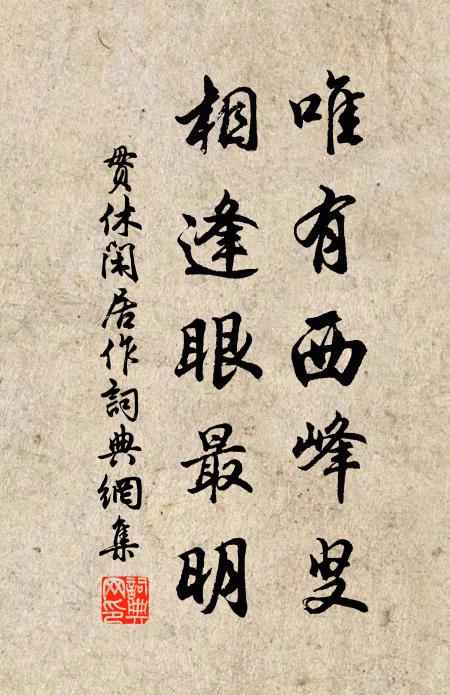 唯有西峰叟
相逢眼最明
貫休閑居作詞典網集
詞典
网印